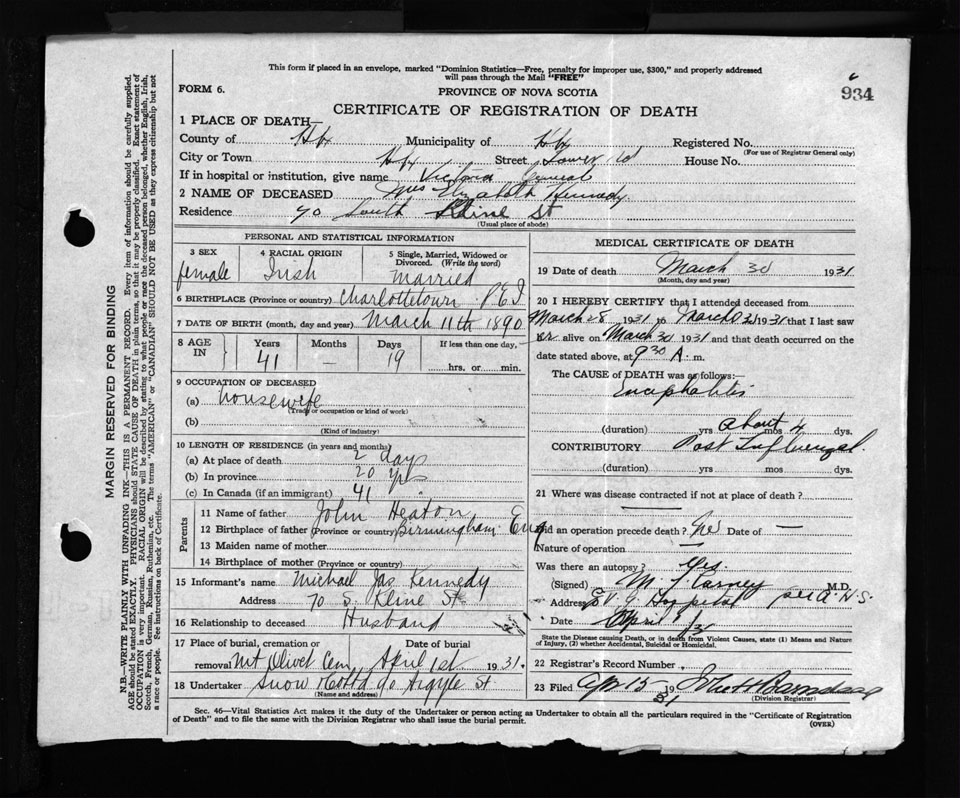 This form if placed in an envelope, marked "Dominion Statistics—Free, penalty for improper use, $300," and properly addressed
will pass through the Mail "FREE"
FORM 6.
PROVINCE OF NOVA SCOTIA
934
CERTIFICATE OF REGISTRATION OF DEATH
1 PLACE OF DEATH—
County of Hfx Municipality of Hfx Registered No.
(For use of Registrar General only)
City or Town Hfx Street Tower Rd House No.
If in hospital or institution, give name Victoria General
2 NAME OF DECEASED Mrs Elizabeth Kennedy
Residence 70 South Kline St
(Usual place of abode)
PERSONAL AND STATISTICAL INFORMATION
3 SEX female
4 RACIAL ORIGIN Irish
5 Single, Married, Widowed or Divorced. (Write the word) Married
6 BIRTHPLACE (Province or country) Charlottetown P.E.I
7 DATE OF BIRTH (month, day and year) March 11th 1890
8 AGE IN Years 41 Months — Days 19 If less than one day, hrs. or min.
9 OCCUPATION OF DECEASED
(a) housewife
(Trade or occupation or kind of work)
(b)
(Kind of industry)
10 LENGTH OF RESIDENCE (in years and months)
(a) At place of death 2 days
(b) In province 20 yrs
(c) In Canada (if an immigrant) 41
Parents
11 Name of father John Heaton
12 Birthplace of father (Province or country) Birmingham Eng
13 Maiden name of mother
14 Birthplace of mother (Province or country)
15 Informant's name Michael Jas Kennedy
Address 70 S. Kline St
16 Relationship to deceased Husband
17 Place of burial, cremation or removal Mt Olivet Cem Date of burial April 1st 1931
18 Undertaker Snow & Co Ltd 90 Argyle St
(Name and Address)
MEDICAL CERTIFICATE OF DEATH
19 Date of death March 30 1931
(Month, day and year)
20 I HEREBY CERTIFY that I attended deceased from
March 28 1931 to March 30 1931 that I last saw
her alive on March 30 1931 and that death occurred on the
date stated above, at 9 30 A. m.
The CAUSE of DEATH was as follows:—
Encephalitis
(duration) yrs about mos 4 dys.
CONTRIBUTORY Post Influenzal
(duration) yrs mos dys.
21 Where was disease contracted if not at place of death?
Did an operation precede death? No Date of —
Nature of operation —
Was there an autopsy? Yes
(Signed) M. J. Carney M.D.
Address V. G. Hospital
Date April 31
State the Disease causing Death, or in death from Violent Causes, state (1) Means and Nature of Injury, (2) whether Accidental, Suicidal or Homicidal.
22 Registrar's Record Number
23 Filed Apr 15 1931
(Division Registrar)
Sec. 46—Vital Statistics Act makes it the duty of the Undertaker or person acting as Undertaker to obtain all the particulars required in the "Certificate of Registration
of Death" and to file the same with the Division Registrar who shall issue the burial permit.
(OVER)
MARGIN RESERVED FOR BINDING
N.B.—WRITE PLAINLY WITH UNFADING INK—THIS IS A PERMANENT RECORD. Every item of information should be carefully supplied.
AGE should be stated EXACTLY. PHYSICIANS should STATE CAUSE OF DEATH in plain terms, so that it may be properly classified. Exact statement of
OCCUPATION is very important. RACIAL ORIGIN will be described by stating to what people or race the deceased person belonged, whether English, Irish,
Scotch, French, German, Russian, Ruthenian, etc. The terms "AMERICAN" or "CANADIAN" SHOULD NOT BE USED as they express citizenship but not
a race or people. See instructions on back of Certificate.